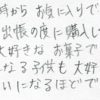 時から お気に入りで
出張の度に購入し
大好きな お菓子で
になる子供も 大好
いになるほどで